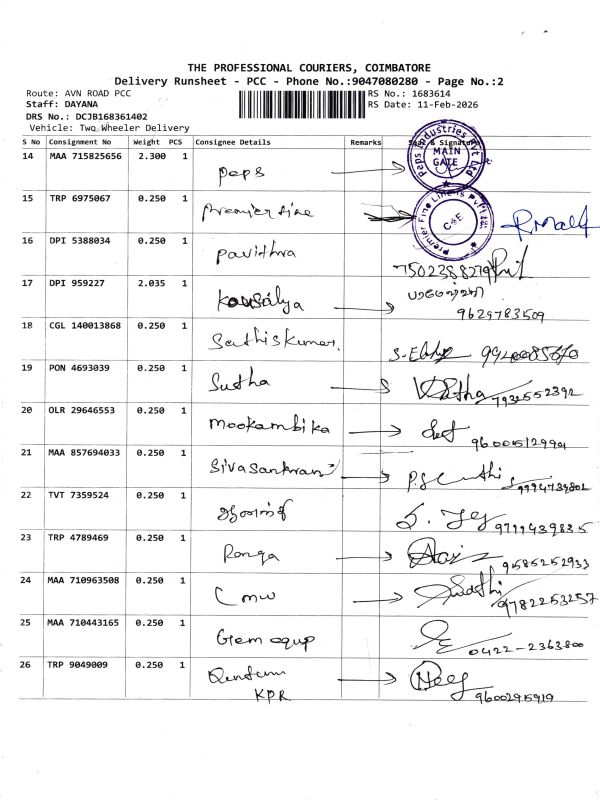 THE PROFESSIONAL COURIERS, COIMBATORE
Delivery Runsheet - PCC - Phone No.:9047080280 - Page No.:2
Route: AVN ROAD PCC
RS No.: 1683614
Staff: DAYANA
RS Date: 11-Feb-2026
DRS No.: DCJB168361402
Vehicle: Two Wheeler Delivery
S No Consignment No Weight PCS Consignee Details Remarks Seal & Signature
14 MAA 715825656 2.300 1 peps
Peps Industries Pvt Ltd MAIN GATE
15 TRP 6975067 0.250 1 premier fine
Premier Fine Linens Pvt Ltd C&E
16 DPI 5388034 0.250 1 pavithra
7502388279
17 DPI 959227 2.035 1 kousalya
9629783509
18 CGL 140013868 0.250 1 Sathiskumar.
19 PON 4693039 0.250 1 Sutha
7932552392
20 OLR 29646553 0.250 1 mookambika
21 MAA 857694033 0.250 1
9994739802
22 TVT 7359524 0.250 1
23 TRP 4789469 0.250 1 Ranga
9585252933
24 MAA 710963508 0.250 1 CMW
9782253257
25 MAA 710443165 0.250 1 Gem equp
0422-2363800
26 TRP 9049009 0.250 1
KPR
9600295919